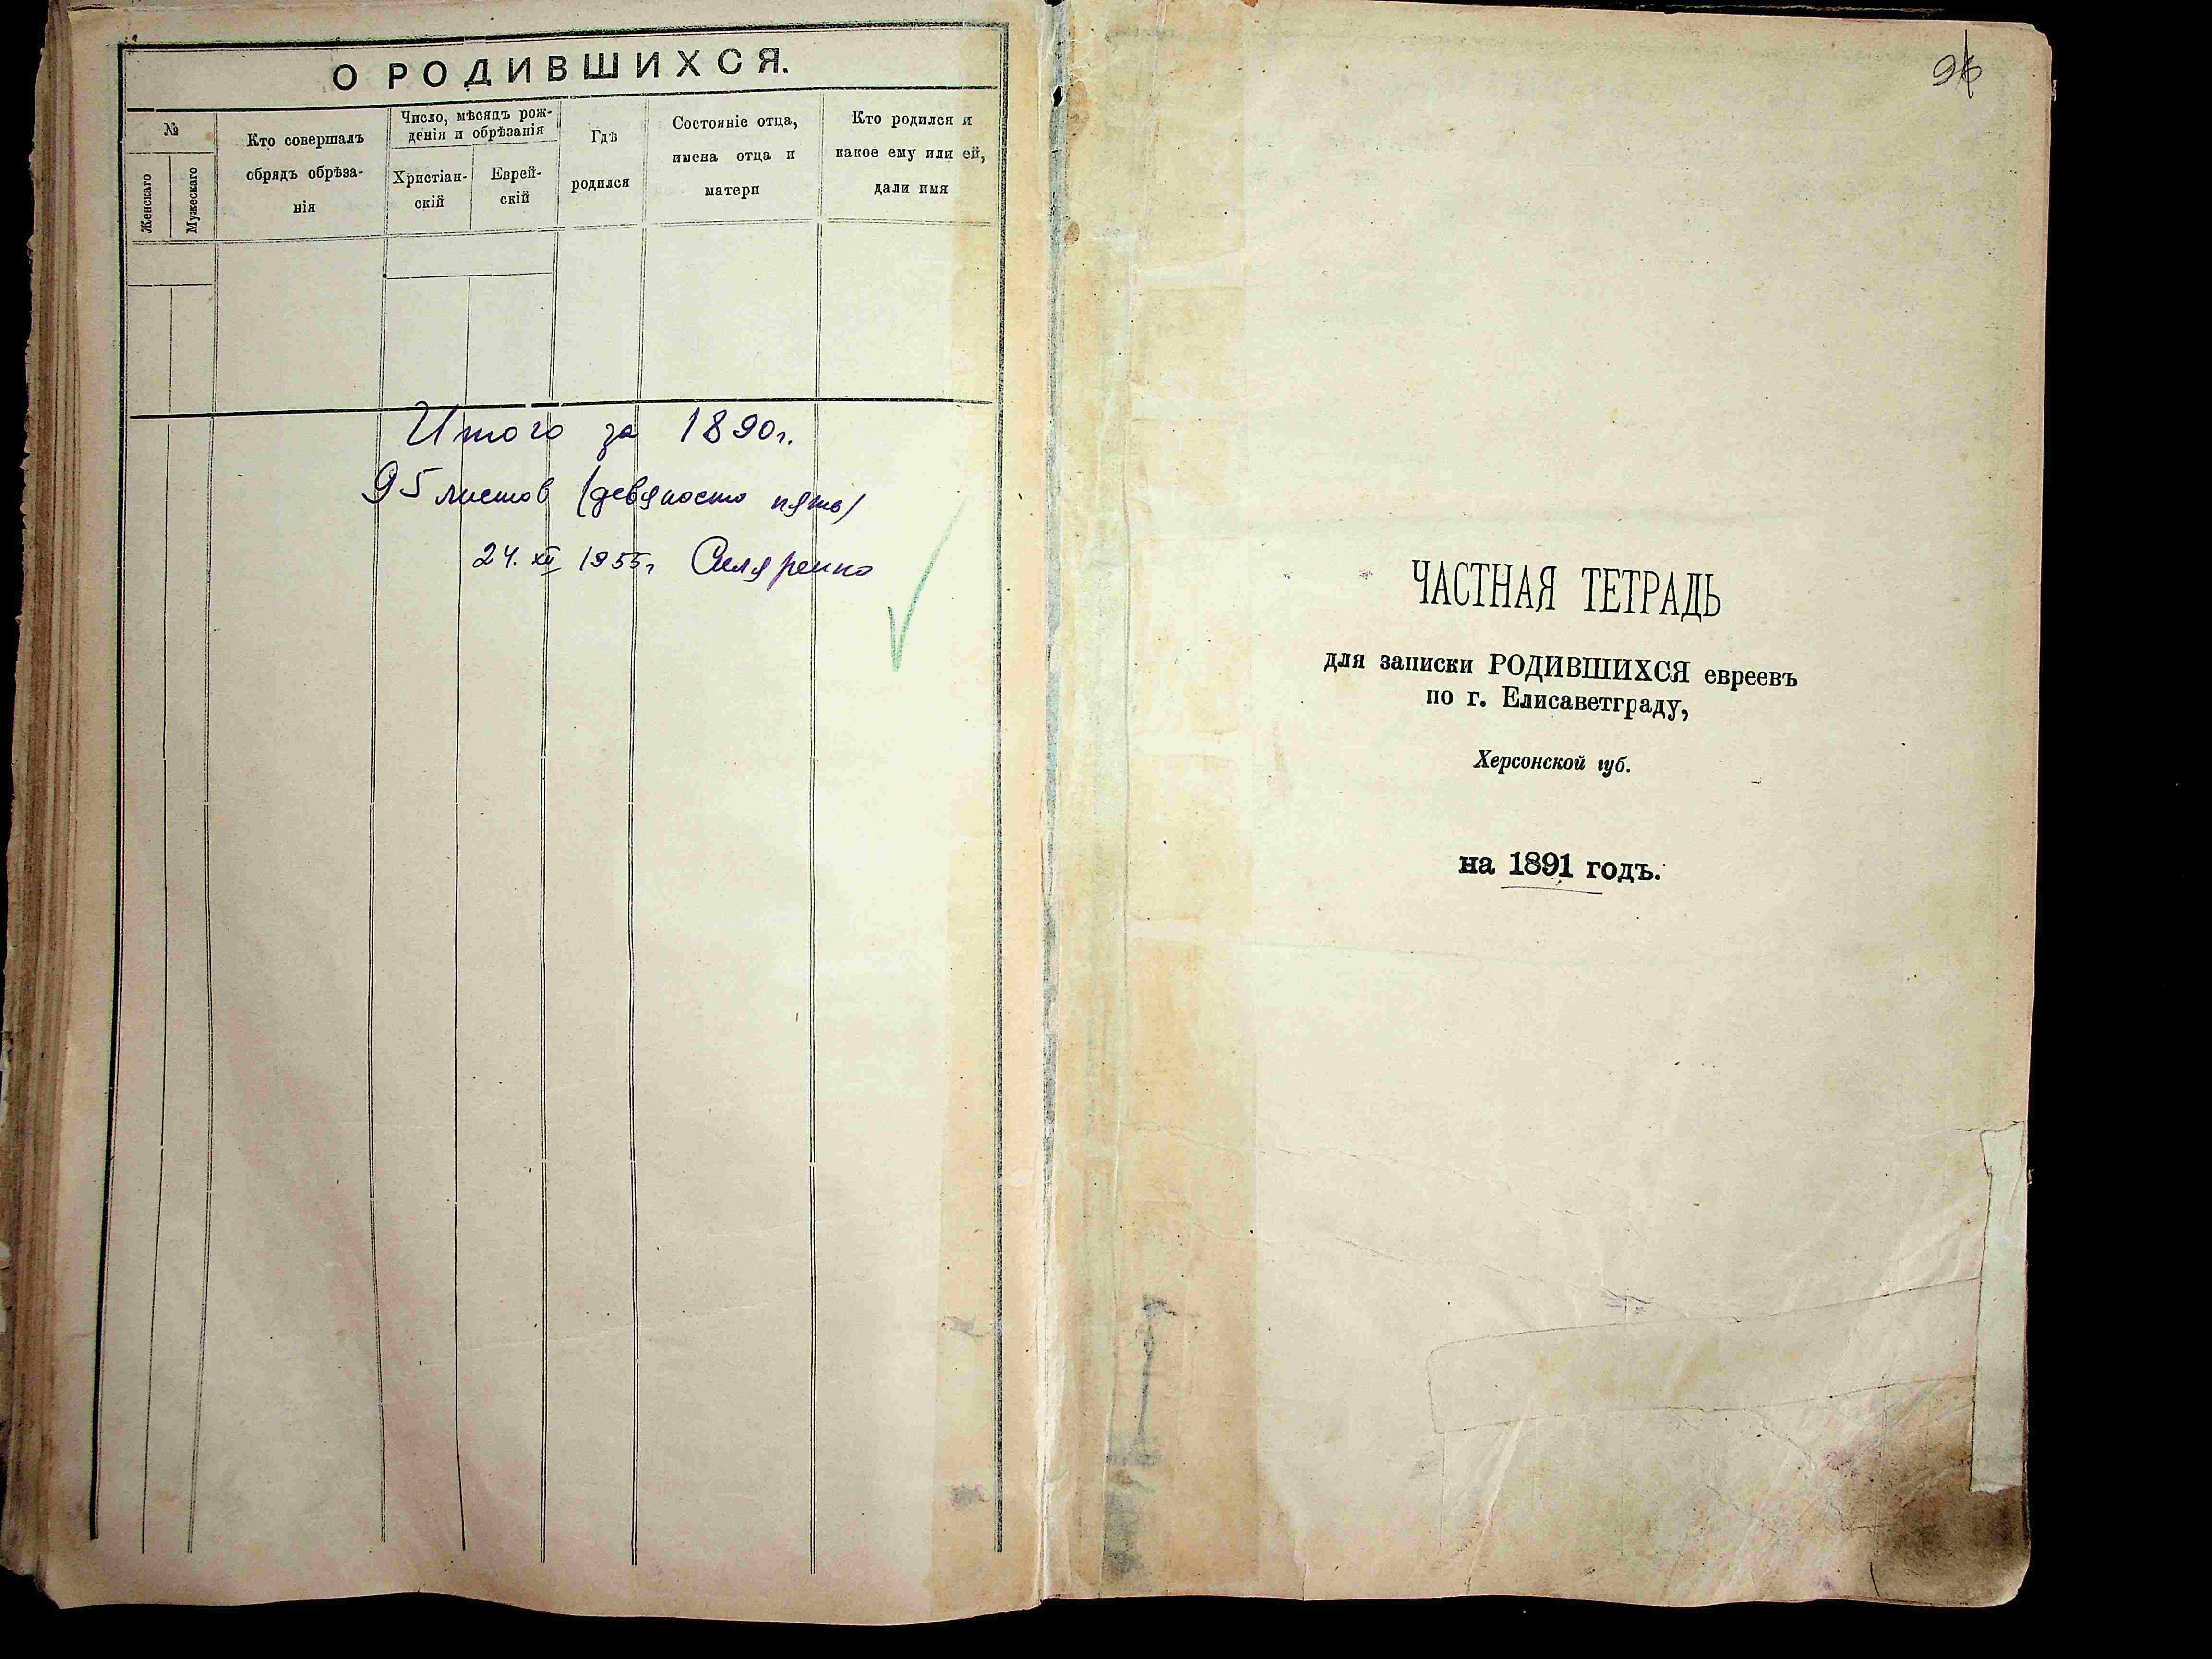 О РОДИВШИХСЯ.
№
Женскаго
Мужескаго
Кто совершалъ
обрядъ обрѣза-
нія
Число, мѣсяцъ рож-
денія и обрѣзанія
Христіан-
скій
Еврей-
скій
Гдѣ
родился
Состояніе отца,
имена отца и
матери
Кто родился и
какое ему или ей,
дали имя
Итого за 1890г.
95 листов (девяносто пять)
24. XII 1955г Скляренко
ЧАСТНАЯ ТЕТРАДЬ
для записки РОДИВШИХСЯ евреевъ
по г. Елисаветграду,
Херсонской губ.
на 1891 годъ.